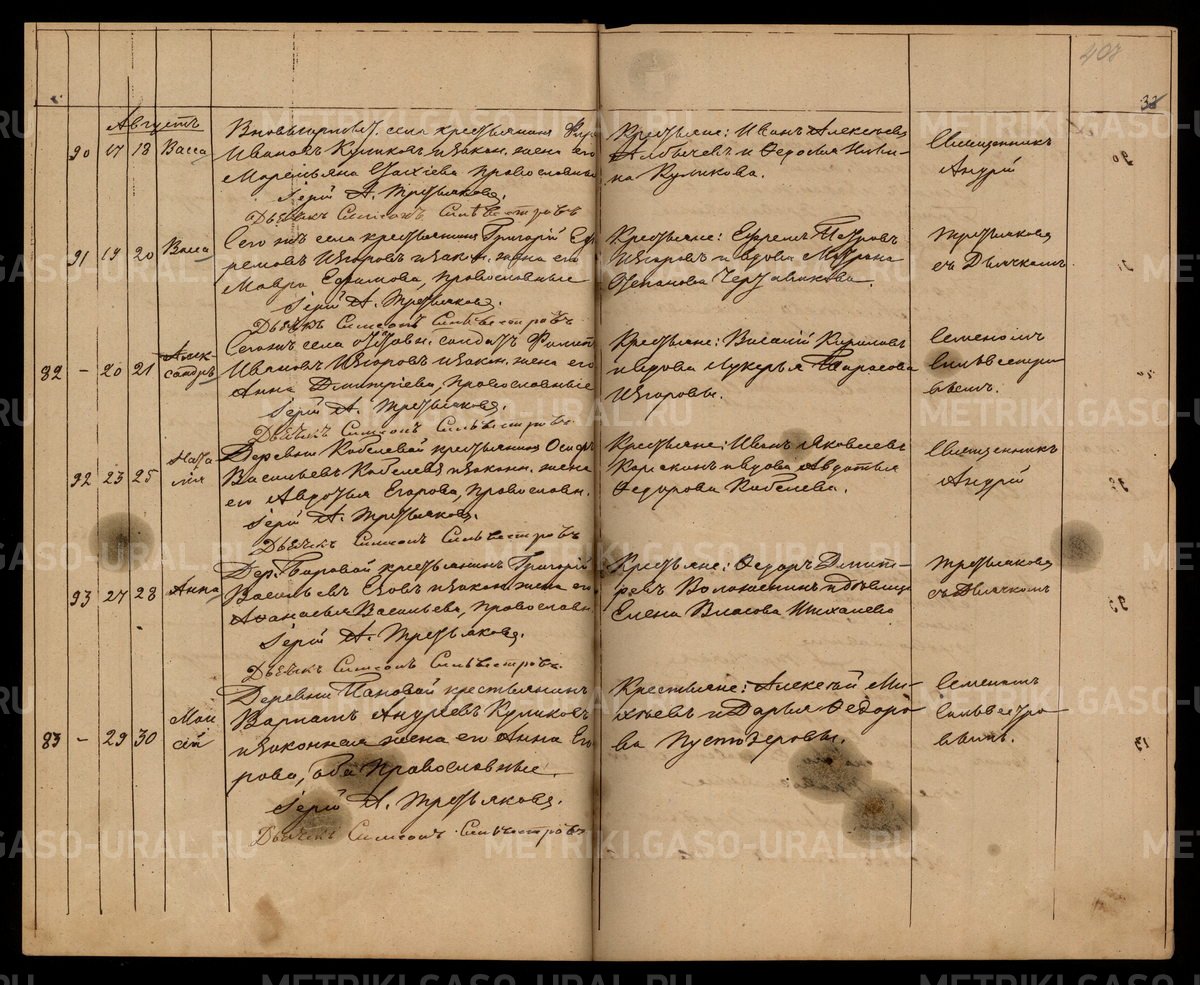 408
33
Августъ
90 17 18 Васса
Ивановъ Куликовъ и закон. жена его
православные
Іерей А. Третьяковъ.
Дьячекъ Симеонъ Сильвестровъ
Крестьяне: Иванъ Алексеевъ
и Федосья
на Куликова.
Священникъ
Андрей
91 19 20 Васса
Того жъ села крестьянинъ Григорій Еф
ремовъ Игоровъ и закон. жена его
Мавра Ефимова, православные
Іерей А. Третьяковъ.
Дьячекъ Симеонъ Сильвестровъ
Крестьяне: Ефремъ Петровъ
Игоровъ и вдова Матрона
Степанова
Третьяковъ
съ Дьячкомъ
82 – 20 21 Алек-
сандръ
села солдатъ Филип
Ивановъ Игоровъ и закон. жена его
Анна Дмитріева, православные
Іерей А. Третьяковъ.
Дьячекъ Симеонъ Сильвестровъ
Крестьяне: Василій Кириловъ
и вдова Лукерья Тарасова
Игоровы.
Семеномъ
Сильвестро-
вымъ.
92 23 25 Ната
лія
Деревни Кобелевой крестьянинъ Осипъ
Васильевъ Кобелевъ и закон. жена
его Авдотья Егорова, православн.
Іерей А. Третьяковъ.
Дьячекъ Симеонъ Сильвестровъ
Крестьяне: Иванъ Яковлевъ
и вдова Авдотья
Федорова Кобелева.
Священникъ
Андрей
93 27 28 Анна
Дер. крестьянинъ Григорій
Васильевъ и закон. жена его
Афанасья Васильева, православн.
Іерей А. Третьяковъ.
Дьячекъ Симеонъ Сильвестровъ.
Крестьяне: Федоръ Дмит-
ревъ и девица
Елена Власова
Третьяковъ
съ Дьячкомъ
83 – 29 30 Мои
сей
Деревни Пановой крестьянинъ
Андреевъ Куликовъ
и законная жена его Анна Его
рова, оба православные.
Іерей А. Третьяковъ.
Дьячекъ Симеонъ Сильвестровъ
Крестьяне: Алексей Ми-
хеевъ и Дарья Федоро
ва Пустозеровы.
Семеномъ
Сильвестро
вымъ.
METRIKI.GASO-URAL.RU